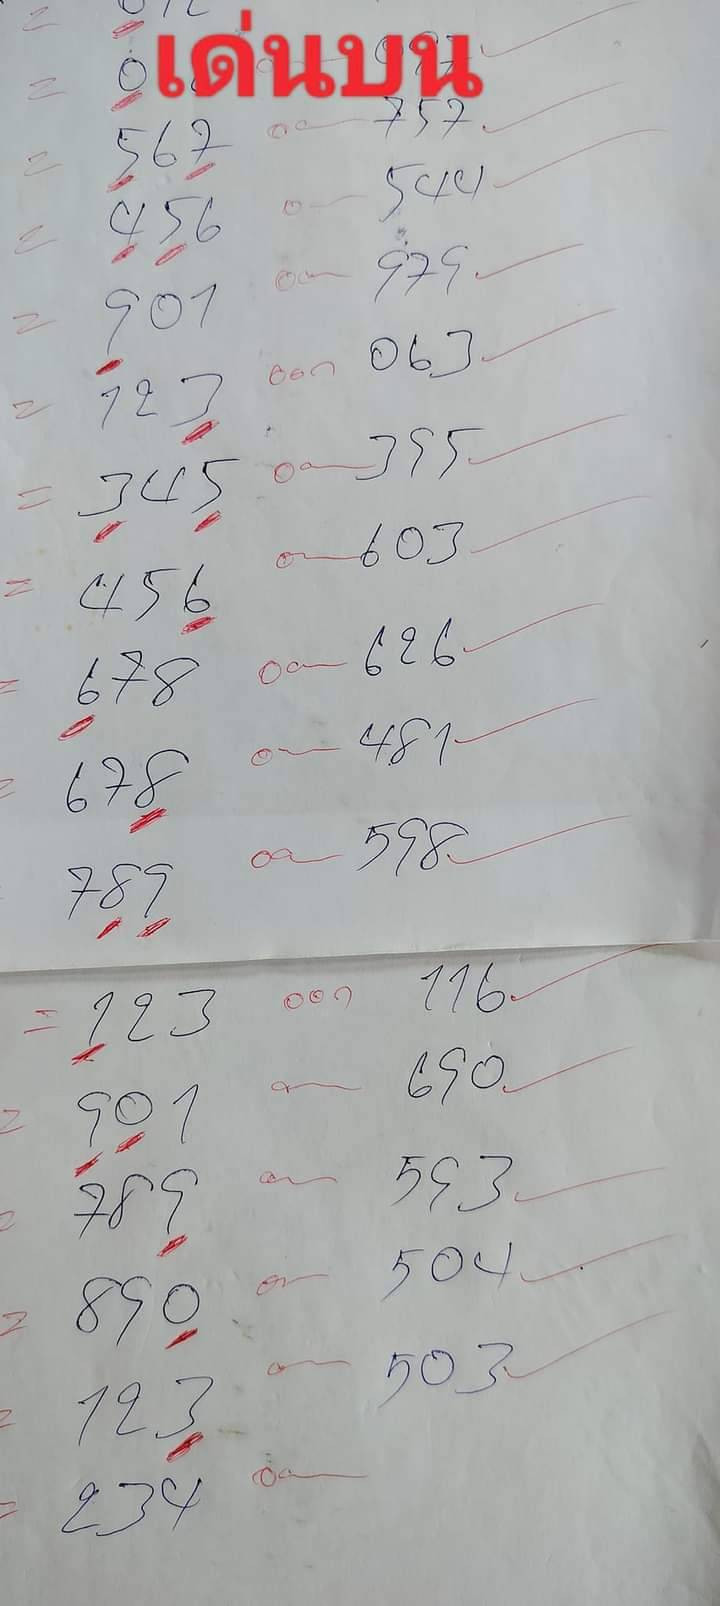 เด่นบน
= 567 ออก 757
= 456 ออก 544
= 901 ออก 979
= 123 ออก 063
= 345 ออก 395
= 456 ออก 603
= 678 ออก 626
= 678 ออก 481
789 ออก 598
= 123 ออก 116
= 901 ออก 690
= 789 ออก 593
= 890 ออก 504
= 123 ออก 503
= 234 ออก